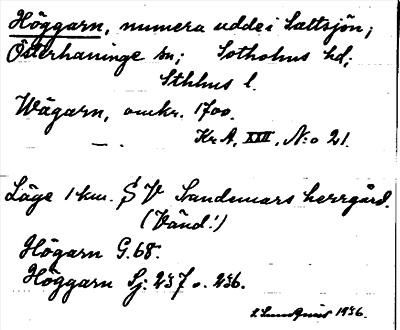 Höggarn, numera udde i Saltsjön;
Österhaninge sn; Sotholms hd;
Sthlms l.
Wägarn, omkr. 1700.
Kr A, XXII, N:o 21.
Läge 1 km. SV Sandemars herrgård.
(Vänd!)
Högarn G.68.
Höggarn Sj: 237 o. 236.
1936.